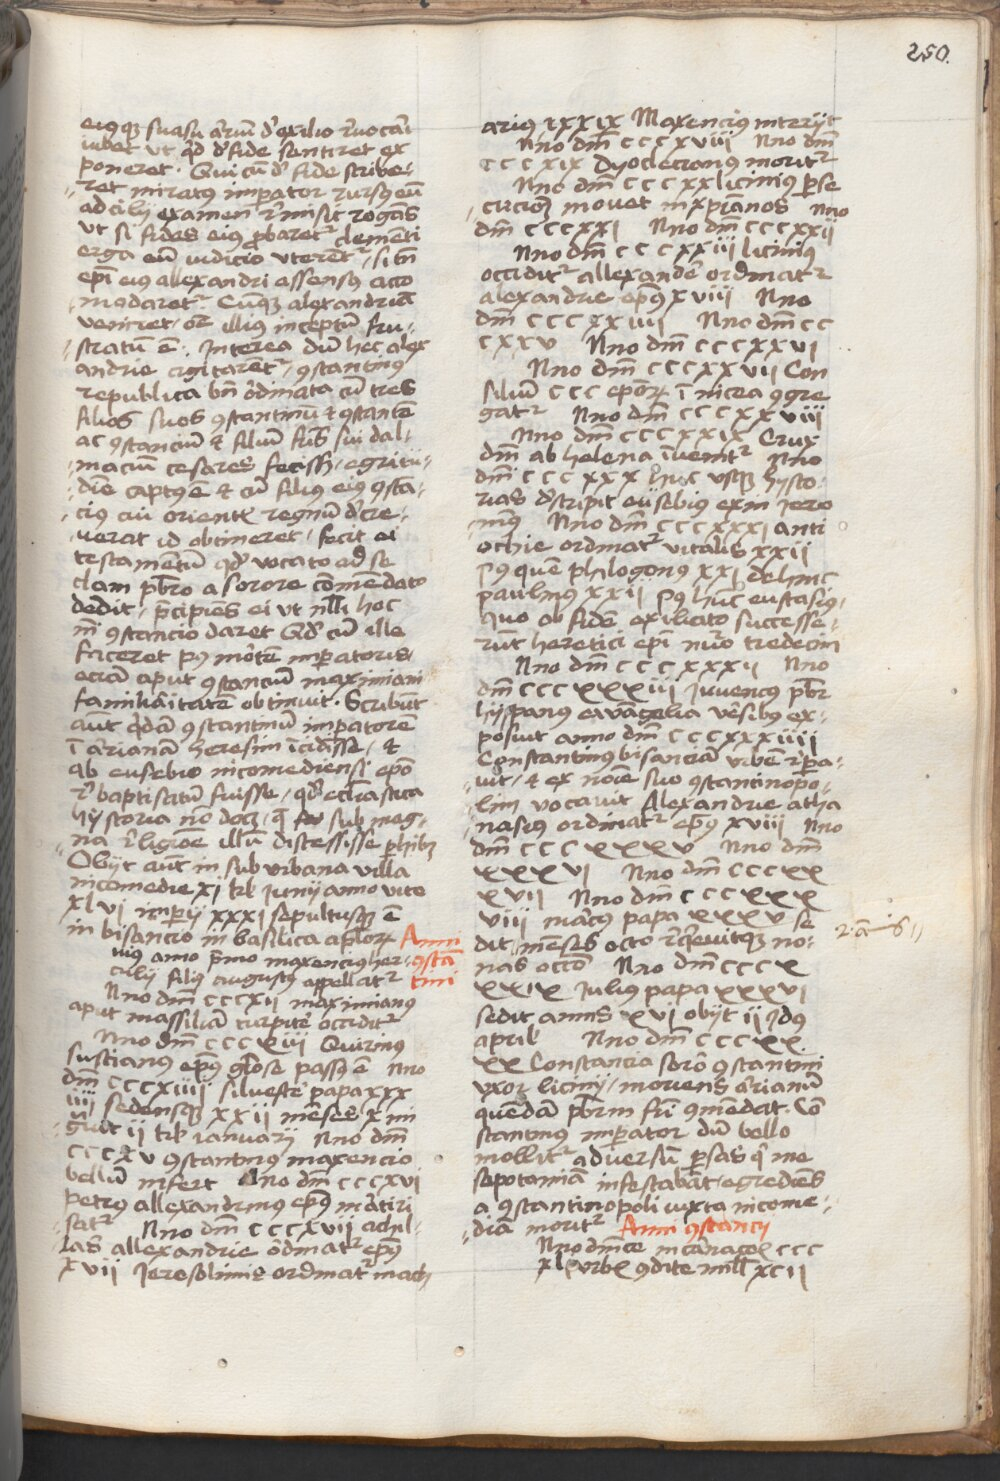 250.
eiusq; suasu arrium de exilio reuocari
iubet ut quid de fide sentiret ex
poneret. Qui cum de fide scribe-
ret miratus imperator rursus eum
ad cilij examen remisit rogans
ut si fides eius probaretur clementi
erga eum iudicio uterentur, si non
epi eius allexandri assensus acco
modaretur. Cumq; alexandriam
veniret, or illius inceptum fru-
stratum e. Interea dum hec alex
andrie agitarentur, 9stantinus
republica bn ordinata cum tres
filios suos 9stantinum & 9stantem
ac 9stancium & filium fris sui dal-
macium cesares fecisset, egritu-
dine captus e & cum filius eius 9sta-
cius cui orientis regnum decre-
verat id obtineret, fecit ei
testamentum qd vocato ad se
clam pbro a sorore comendato
dedit, precipiens ei ut nulli hoc
ni 9stancio daret Qd cum ille
faceret post mortem imperatoris
eciam aput 9stancium maximiam
familiaritatem obtinuit. Scribunt
aut quidam 9stantinum impatorem
in arianam heresim incidisse, &
ab eusebio nicomediensi epo
rebaptisatum fuisse, quod ecclesiastica
hystoria non docet, sub mag-
na religione illum discessisse phibz
Obijt aut in sub urbana villa
nicomedie xi kl Junij anno vite
xlvi imperij xxxi sepultusq; e
in bisancio in basilica aplorum Anni
uius anno primo maxencius her- 9stan
culij filius augustus appellatur tini
Anno dni cccxij maximianus
aput massiliam turpiter occiditur
Anno dni cccxiii Quirinus
suscianus epus gliose passus e Anno
dni cccxiiij silvester papa xxx
iiii sedensq; xxii menses x mi
gravit ii kl ianuarij Anno dni
cccxv 9stantinus maxencio
bellum infert Anno dni cccxvi
petrus allexandrinus epus martiri
satur Anno dni cccxvii achil-
las allexandrie ordinatur epus
xvii Jerosolimis ordinatur mach
arius xxxix Maxencius interijt
Anno dni cccxviii Anno dni
cccxix dyoclecianus moritur
Anno dni cccxx licinius perse
cucionem movet in xpianos Anno
dni cccxxi Anno dni cccxxii
Anno dni cccxxiii licinius
occiditur allexander ordinatur
alexandrie epus xviii Anno
dni cccxxiiii Anno dni cc
cxxv Anno dni cccxxvi
Anno dni cccxxvii Con
silium ccc eporum in nicea 9gre
gatur Anno dni cccxxviii
Anno dni cccxxix Crux
dni ab helena invenitur Anno
dni cccxxx huc usq; hysto-
rias descripsit eusebius exin Jero
nimus Anno dni cccxxxi anti
ochie ordinatur vitalis xxii
Post quem philogonus xxi dehinc
paulinus xxii Post hunc eustasius,
quo ob fidem exiliato successe-
runt heretici epi numero tredecim
Anno dni cccxxxii Anno
dni cccxxxiii Juvencus pbr
hyspanus euangelia versibus ex-
posuit anno dni cccxxxiiii
Constantinus bisanciam urbem repa-
uit, & ex noie suo 9stantinopo-
lim vocavit Alexandrie atha
nasius ordinatur epus xviii Anno
dni cccxxxv Anno dni
xxxvi Anno dni cccxx
xvii Anno dni cccxxx
viii marcus papa xxxv se
dit menses octo requievitq; no-
nas octob Anno dni cccx
xxix Julius papa xxxvi
sedit annis xvi obijt ii Idus
april Anno dni cccxx
xx Constancia soror 9stantini
uxor licinij, moriens arrianum
quendam pbrm fri 9mendat. Con
stantinus imperator dum bello
mollitur adversum persas qui me
sepotamiam infestabant, egrediens
a 9stantinopoli iuxta nicome-
diam moritur Anni 9stancij
Anno dnice incarnacois ccc
xl urbis 9dite mill xcii